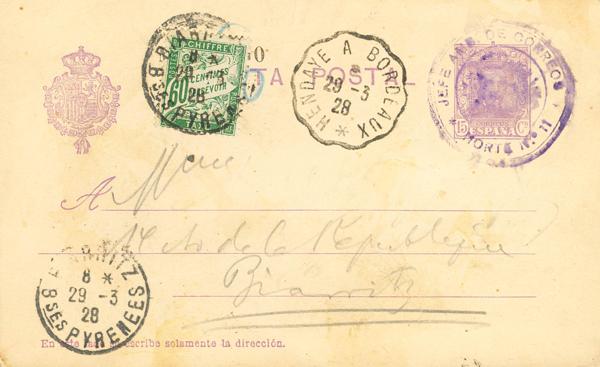 BIARRITZ
8 *
29 -3
28
Bses PYRENEES
CHIFFRE
60
CENTIMES
A PERCEVOIR
TA POSTAL
HENDAYE A BORDEAUX
29 -3
28
*
JEFE AMB. DE CORREOS
NORTE Nº 11
15 Cs
ESPAÑA
A
de la République
Biarritz
BIARRITZ
8 *
29 -3
28
Bses PYRENEES
En este lado se escribe solamente la dirección.